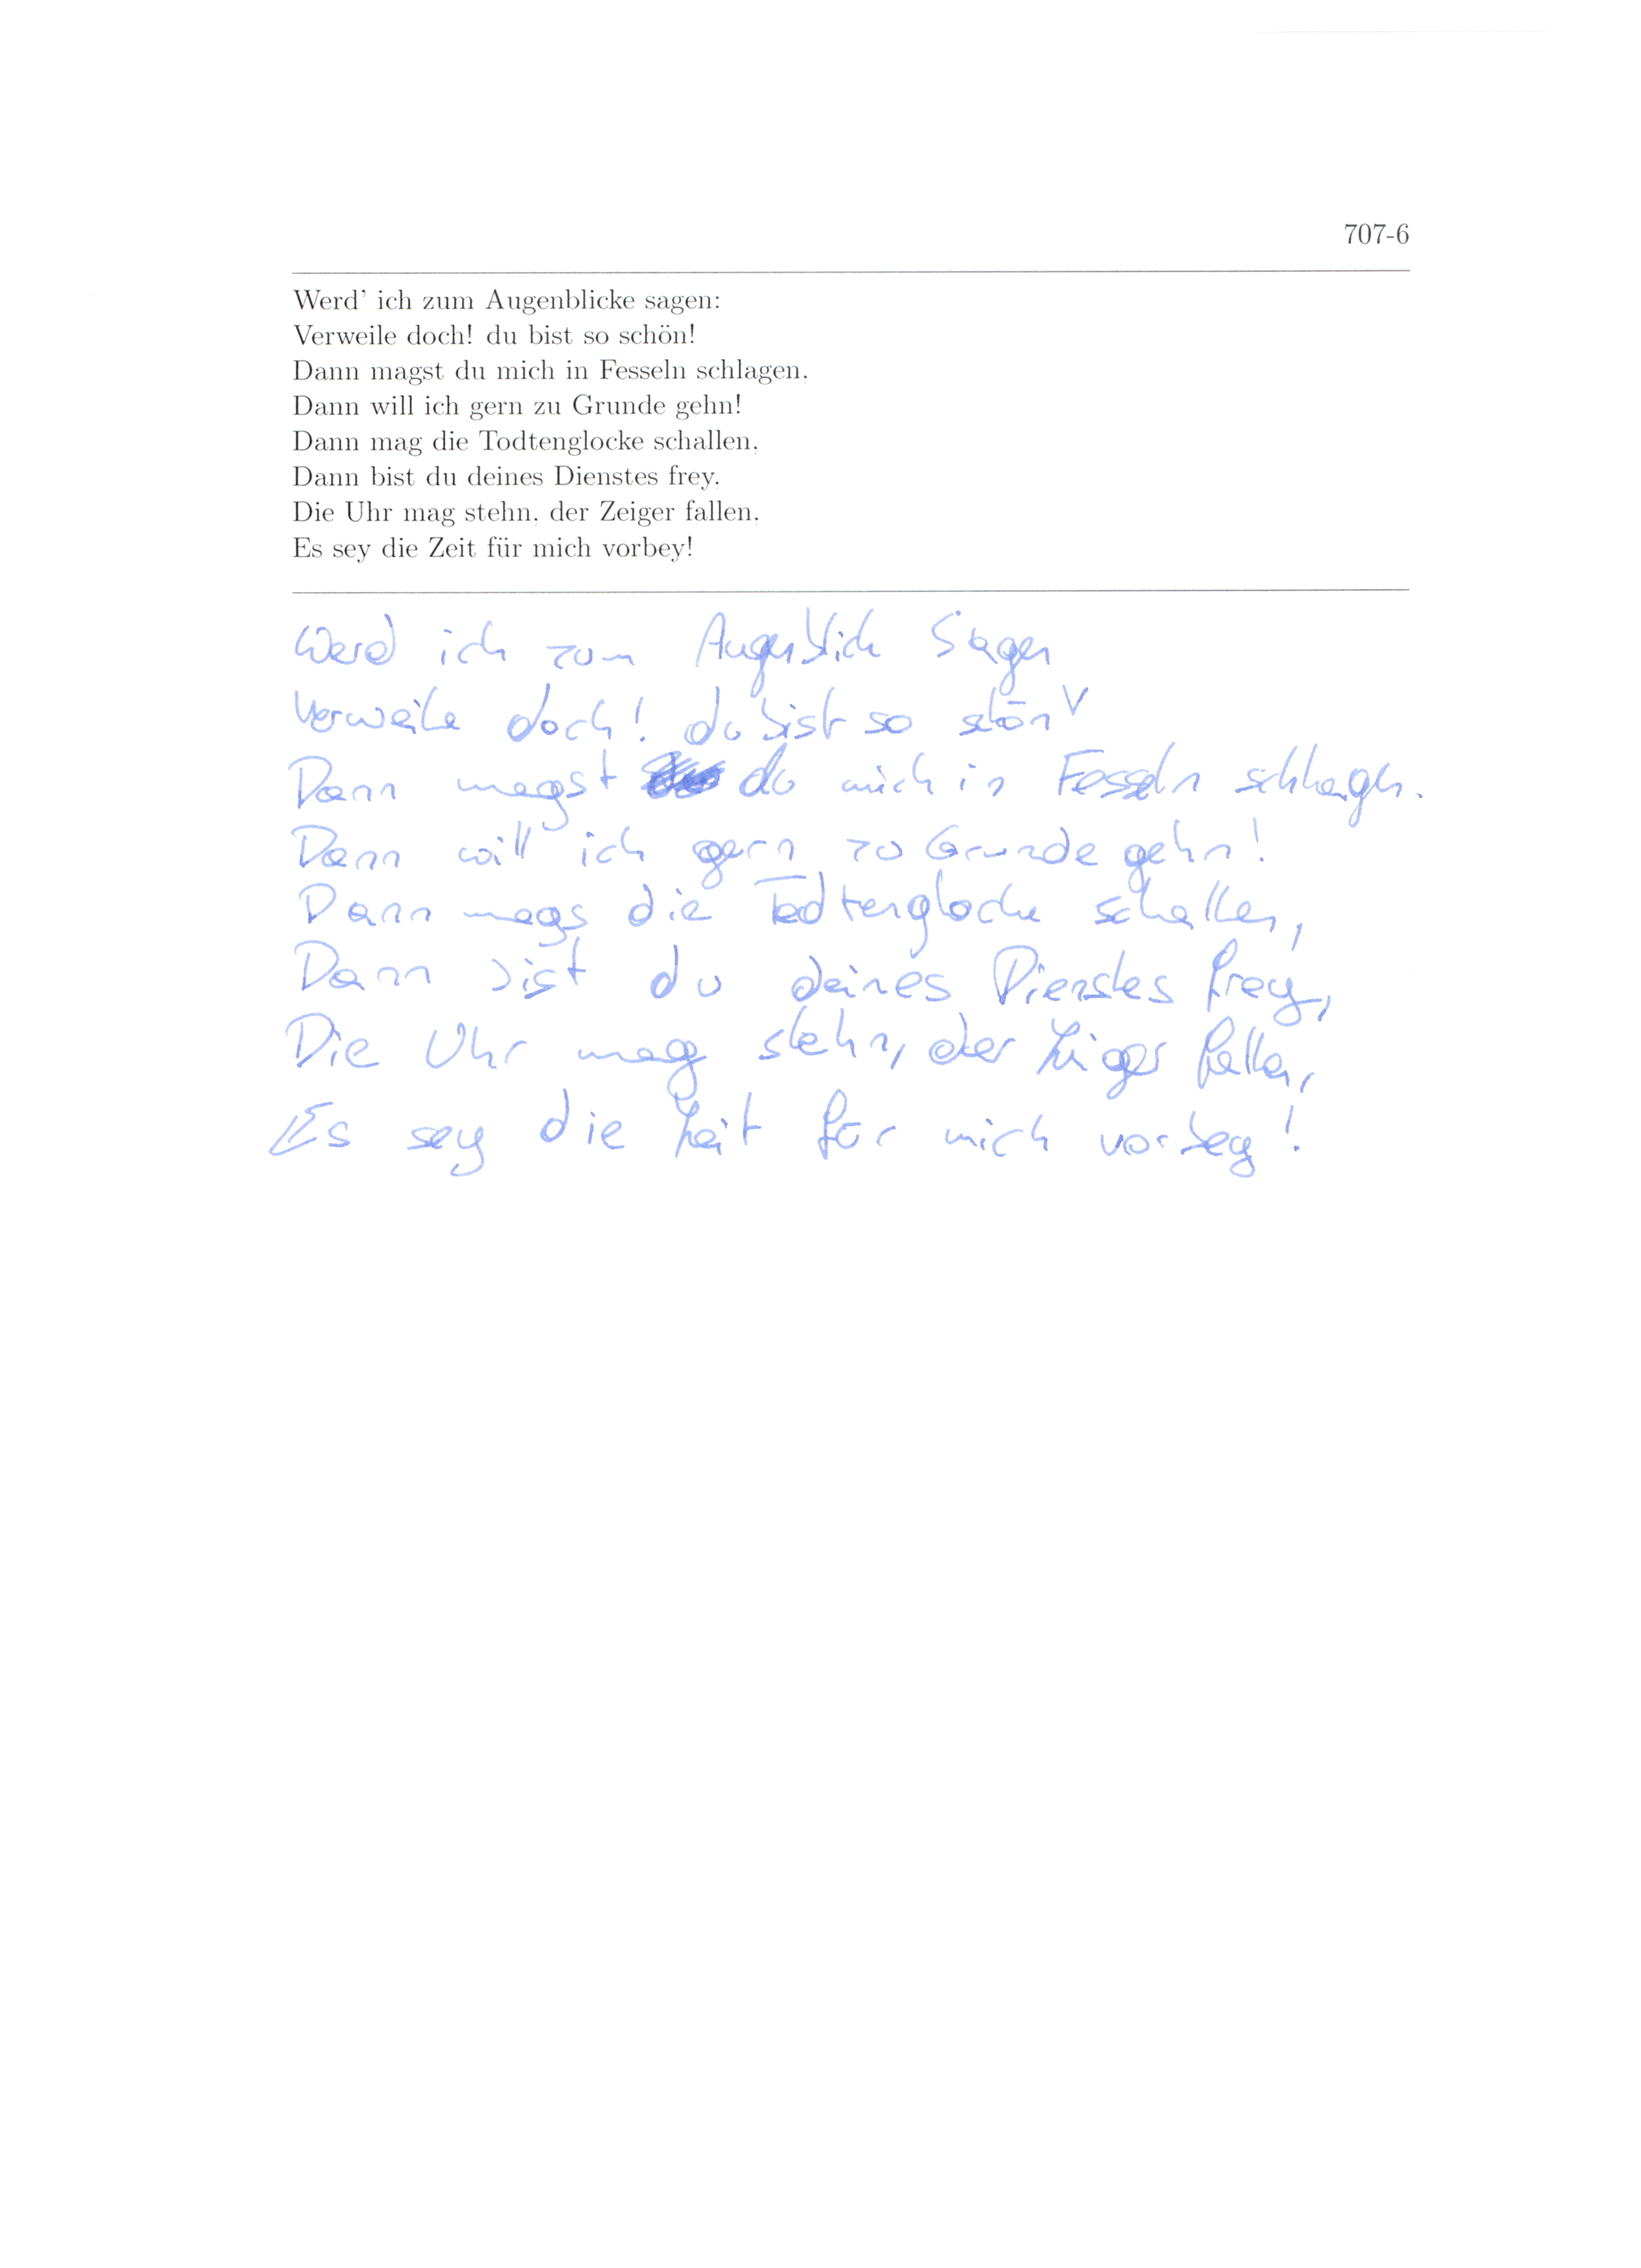 707-6
Werd' ich zum Augenblicke sagen:
Verweile doch! du bist so schön!
Dann magst du mich in Fesseln schlagen.
Dann will ich gern zu Grunde gehn!
Dann mag die Todtenglocke schallen.
Dann bist du deines Dienstes frey.
Die Uhr mag stehn. der Zeiger fallen.
Es sey die Zeit für mich vorbey!
Werd ich zum Augenblick Sagen
Verweile doch! du bist so schön
Dann magst du mich in Fesseln schlagen.
Dann will ich gern zu Grunde gehn!
Dann mags die Todtenglocke schallen,
Dann bist du deines Dienstes frey,
Die Uhr mag stehn, der Zeiger fallen,
Es sey die Zeit für mich vorbey!